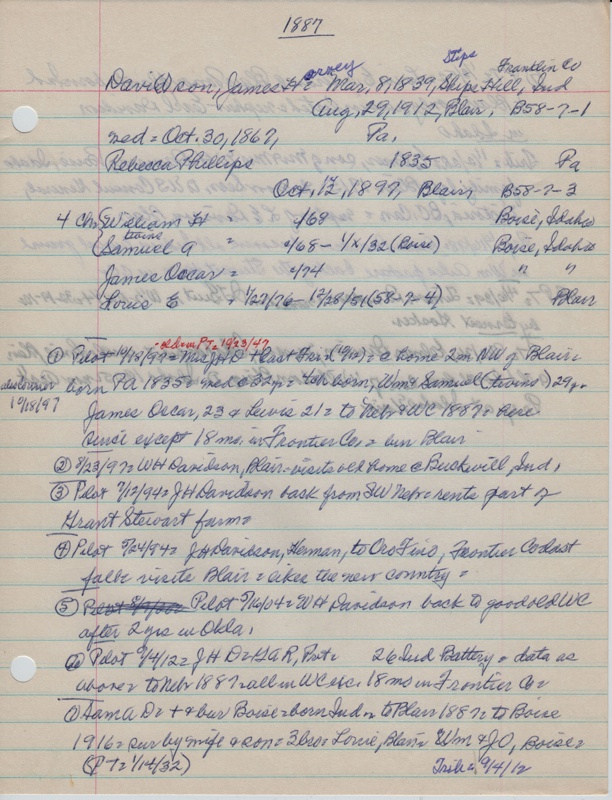 1887
Stips Franklin Co
Davidson, James H = arvey Mar, 8, 1839, Stips Hill, Ind
Aug, 29, 1912, Blair, B58-7-1
med = Oct. 30, 1867, Pa,
Rebecca Phillips 1835 Pa
Oct, 17, 1897, Blair B58-7-3
4 Ch William H = /68 Boise, Idaho
twins
Samuel A = /68 - 1/x/32 (Boise) Boise, Idaho
James Oscar = /74 " "
Louis E = 1/27/76 - 12/28/51 (58-7-4) Blair
also in PT = 10/23/47
① Pilot 10/18/97 = Mrs J H D + last Frid (10/12) = @ home 2 m NW of Blair =
born Pa 1835 = med @ 32 yr = 4 ch born, Wm & Samuel (twins) 29 yr
also Courier
10/18/97
James Oscar, 23 & Lewis 21 = to Nebr & WC 1887 = here
since except 18 mo, in Frontier Co = bur Blair
② 8/23/97 = W H Davidson, Blair = visits old home @ Buckwill, Ind,
③ Pilot 7/12/94 = J H Davidson back from SW Nebr = rents part of
Grant Stewart farm =
④ Pilot 5/24/94 = J H Davidson, Herman, to Oro Fino, Frontier Co last
fall = visits Blair = likes the new country =
⑤ Pilot 5/16/04 = W H Davidson back to good old WC
after 2 yrs in Okla,
Pilot 9/4/12 = J H D = GAR, Pvt = 26 Ind Battery = data as
above = to Nebr 1887 = all in WC exc. 18 mo in Frontier Co =
Sam A D = + & bur Boise = born Ind = to Blair 1887 = to Boise
1916 = sur by wife & son = 3 bro = Louie, Blair = Wm & J O, Boise =
(PT = 1/14/32) Trib = 9/4/12